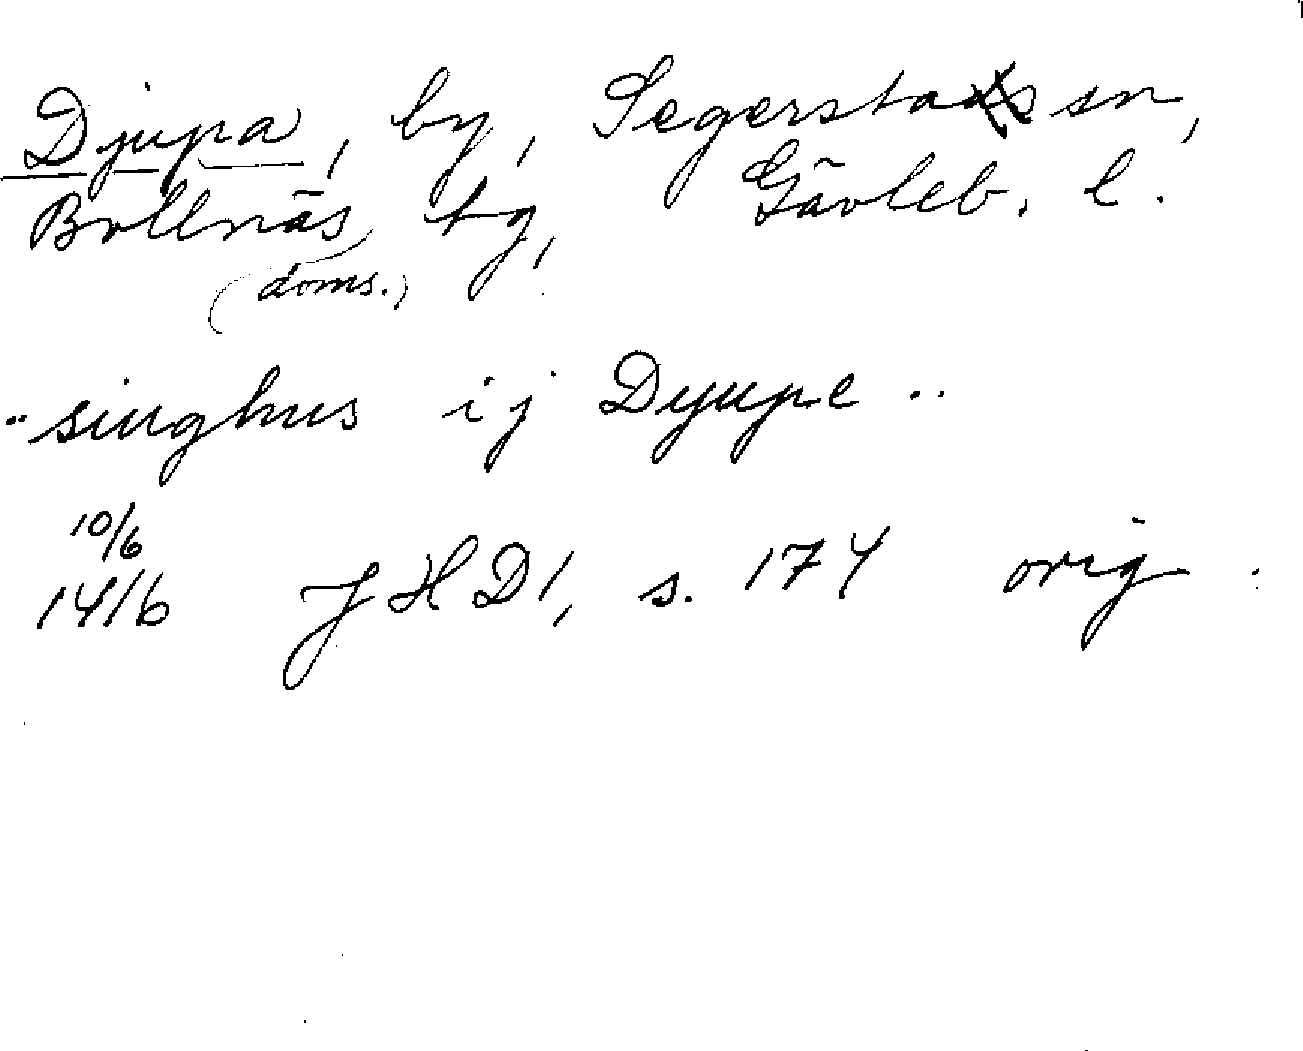 Djupa, by, Segersta sn,
Bollnäs tg, Gävleb. l.
(doms.)
"singhus ij Dyupe ..
10/6
1416 JHD1, s. 174 orig.